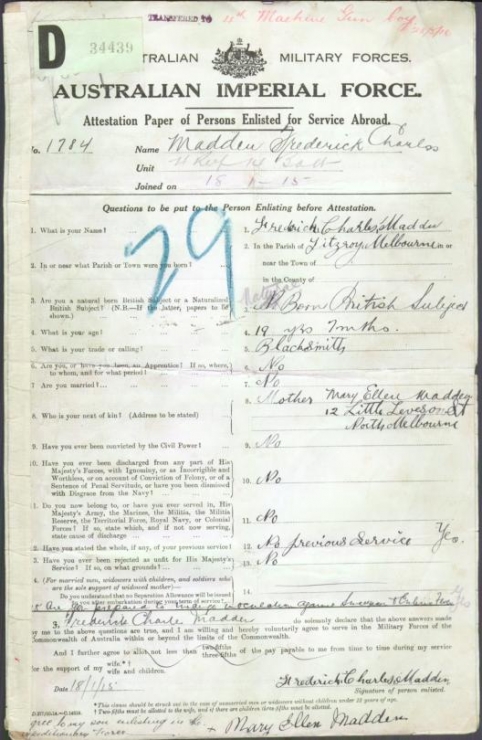 TRANSFERED TO 11th Machine Gun Coy
D
34439
AUSTRALIAN MILITARY FORCES.
AUSTRALIAN IMPERIAL FORCE.
Attestation Paper of Persons Enlisted for Service Abroad.
No. 1784 Name Madden Frederick Charles
Unit
Joined on 15 1 - 15
Questions to be put to the Person Enlisting before Attestation.
29
1. What is your Name? 1. Frederick Charles Madden
2. In or near what Parish or Town were you born? 2. In the Parish of Fitzroy Melbourne in or
near the Town of
in the County of
3. Are you a natural born British Subject or a Naturalized
British Subject? (N.B.—If the latter, papers to be
shown.) 3. N Born British Subject
4. What is your age? 4. 19 yrs 7 mths.
5. What is your trade or calling? 5. Blacksmith
6. Are you, or have you been, an Apprentice? If so, where,
to whom, and for what period? 6. No
7. Are you married? 7. No
8. Who is your next of kin? (Address to be stated) 8. Mother Mary Ellen Madden
12 Little Leveson St
North Melbourne
9. Have you ever been convicted by the Civil Power? 9. No
10. Have you ever been discharged from any part of His
Majesty's Forces, with Ignominy, or as Incorrigible and
Worthless, or on account of Conviction of Felony, or of a
Sentence of Penal Servitude, or have you been dismissed
with Disgrace from the Navy? 10. No
1. Do you now belong to, or have you ever served in, His
Majesty's Army, the Marines, the Militia, the Militia
Reserve, the Territorial Force, Royal Navy, or Colonial
Forces? If so, state which, and if not now serving,
state cause of discharge 11. No
2. Have you stated the whole, if any, of your previous service? 12. No previous service Yes.
3. Have you ever been rejected as unfit for His Majesty's
Service? If so, on what grounds? 13. No
4. (For married men, widowers with children, and soldiers who
are the sole support of widowed mother—
Do you understand that no Separation Allowance will be issued
to you after embarkation during your term of service? 14.
Are you prepared to undergo inoculation against Smallpox & Enteric Fever Yes
I, Frederick Charles Madden do solemnly declare that the above answers made
by me to the above questions are true, and I am willing and hereby voluntarily agree to serve in the Military Forces of the
Commonwealth of Australia within or beyond the limits of the Commonwealth.
And I further agree to allot not less than two-fifths
three-fifths of the pay payable to me from time to time during my service
for the support of my wife.*†
wife and children.
Date 18/1/15 Frederick Charles Madden
Signature of person enlisted.
*This clause should be struck out in the case of unmarried men or widowers without children under 18 years of age.
† Two fifths must be allotted to the wife, and if there are children three-fifths must be allotted.
agree to my son enlisting in the
Expeditionary Force + Mary Ellen Madden